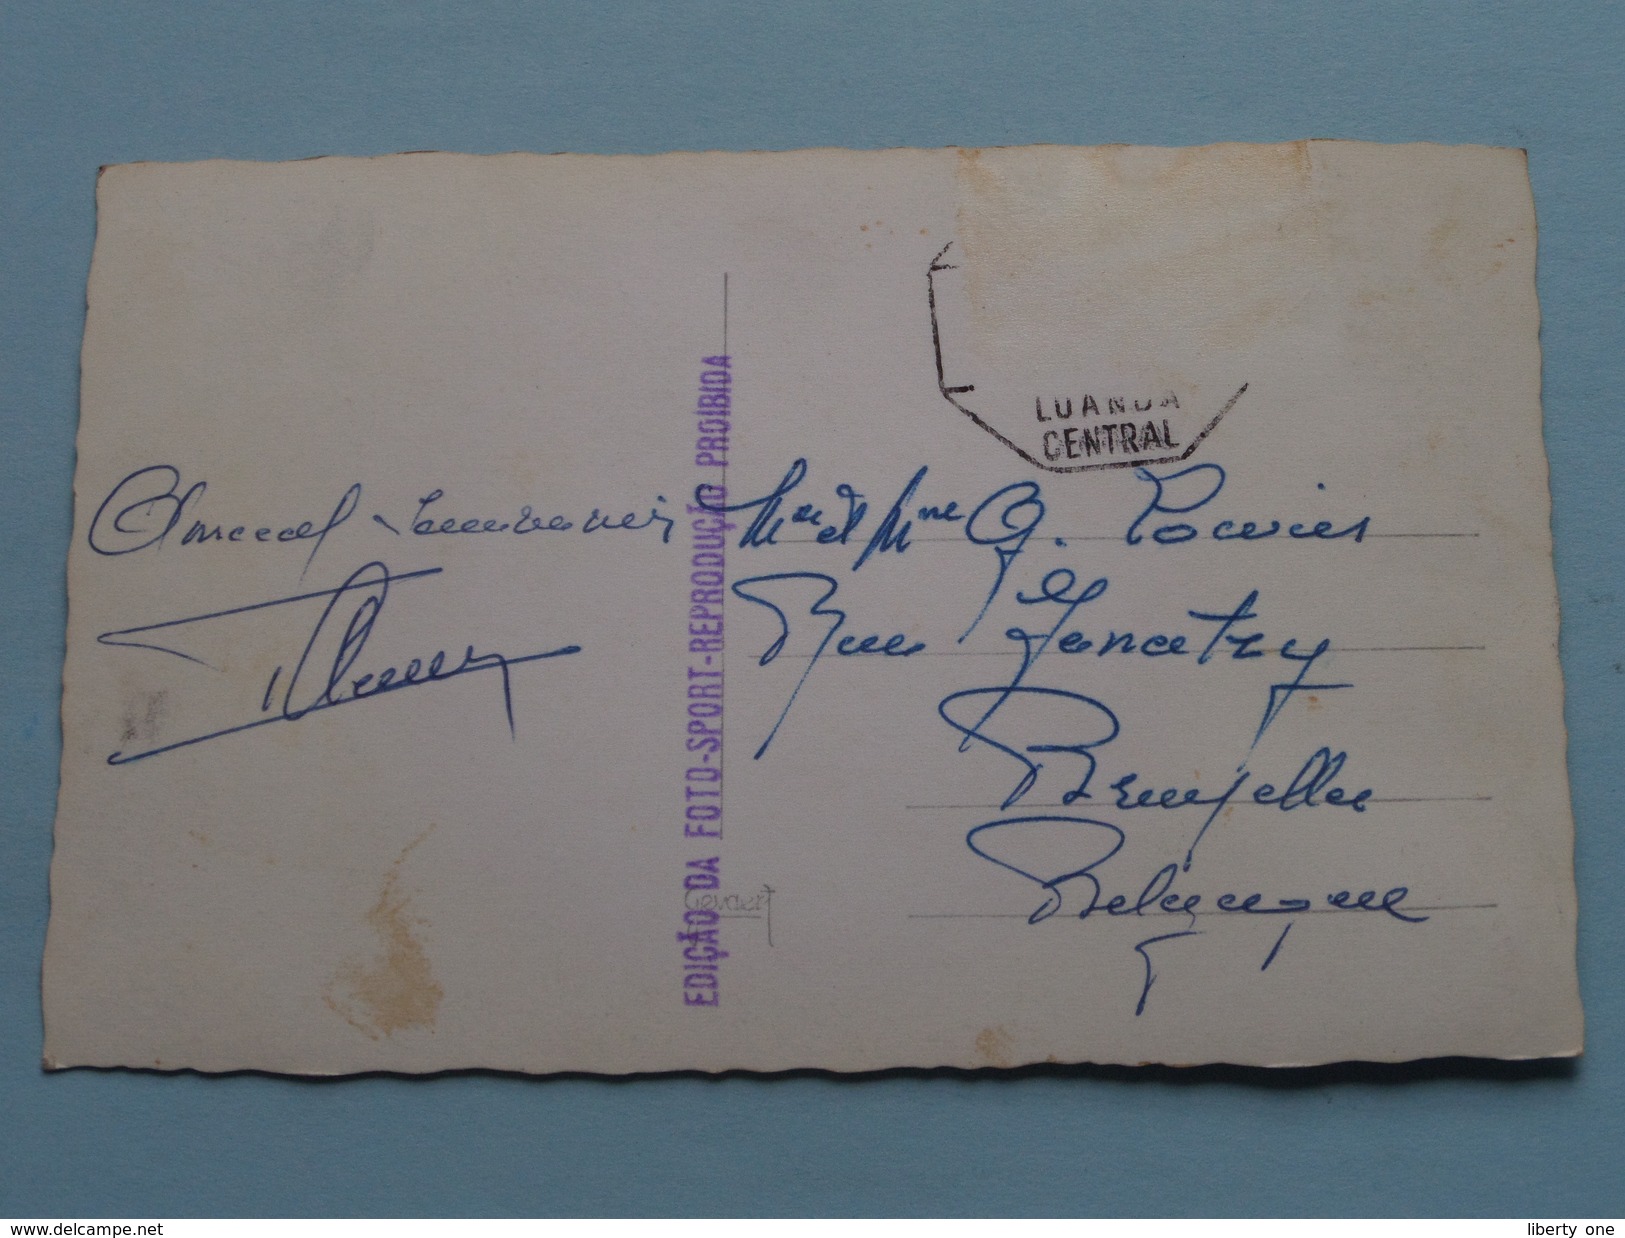 LUANDA
CENTRAL
EDIÇÃO DA FOTO-SPORT-REPRODUÇÃO PROIBIDA
Amical souvenir
Mr et Mme G.
Rue
Bruxelles
Belgique
Gevaert
www.delcampe.net
liberty one